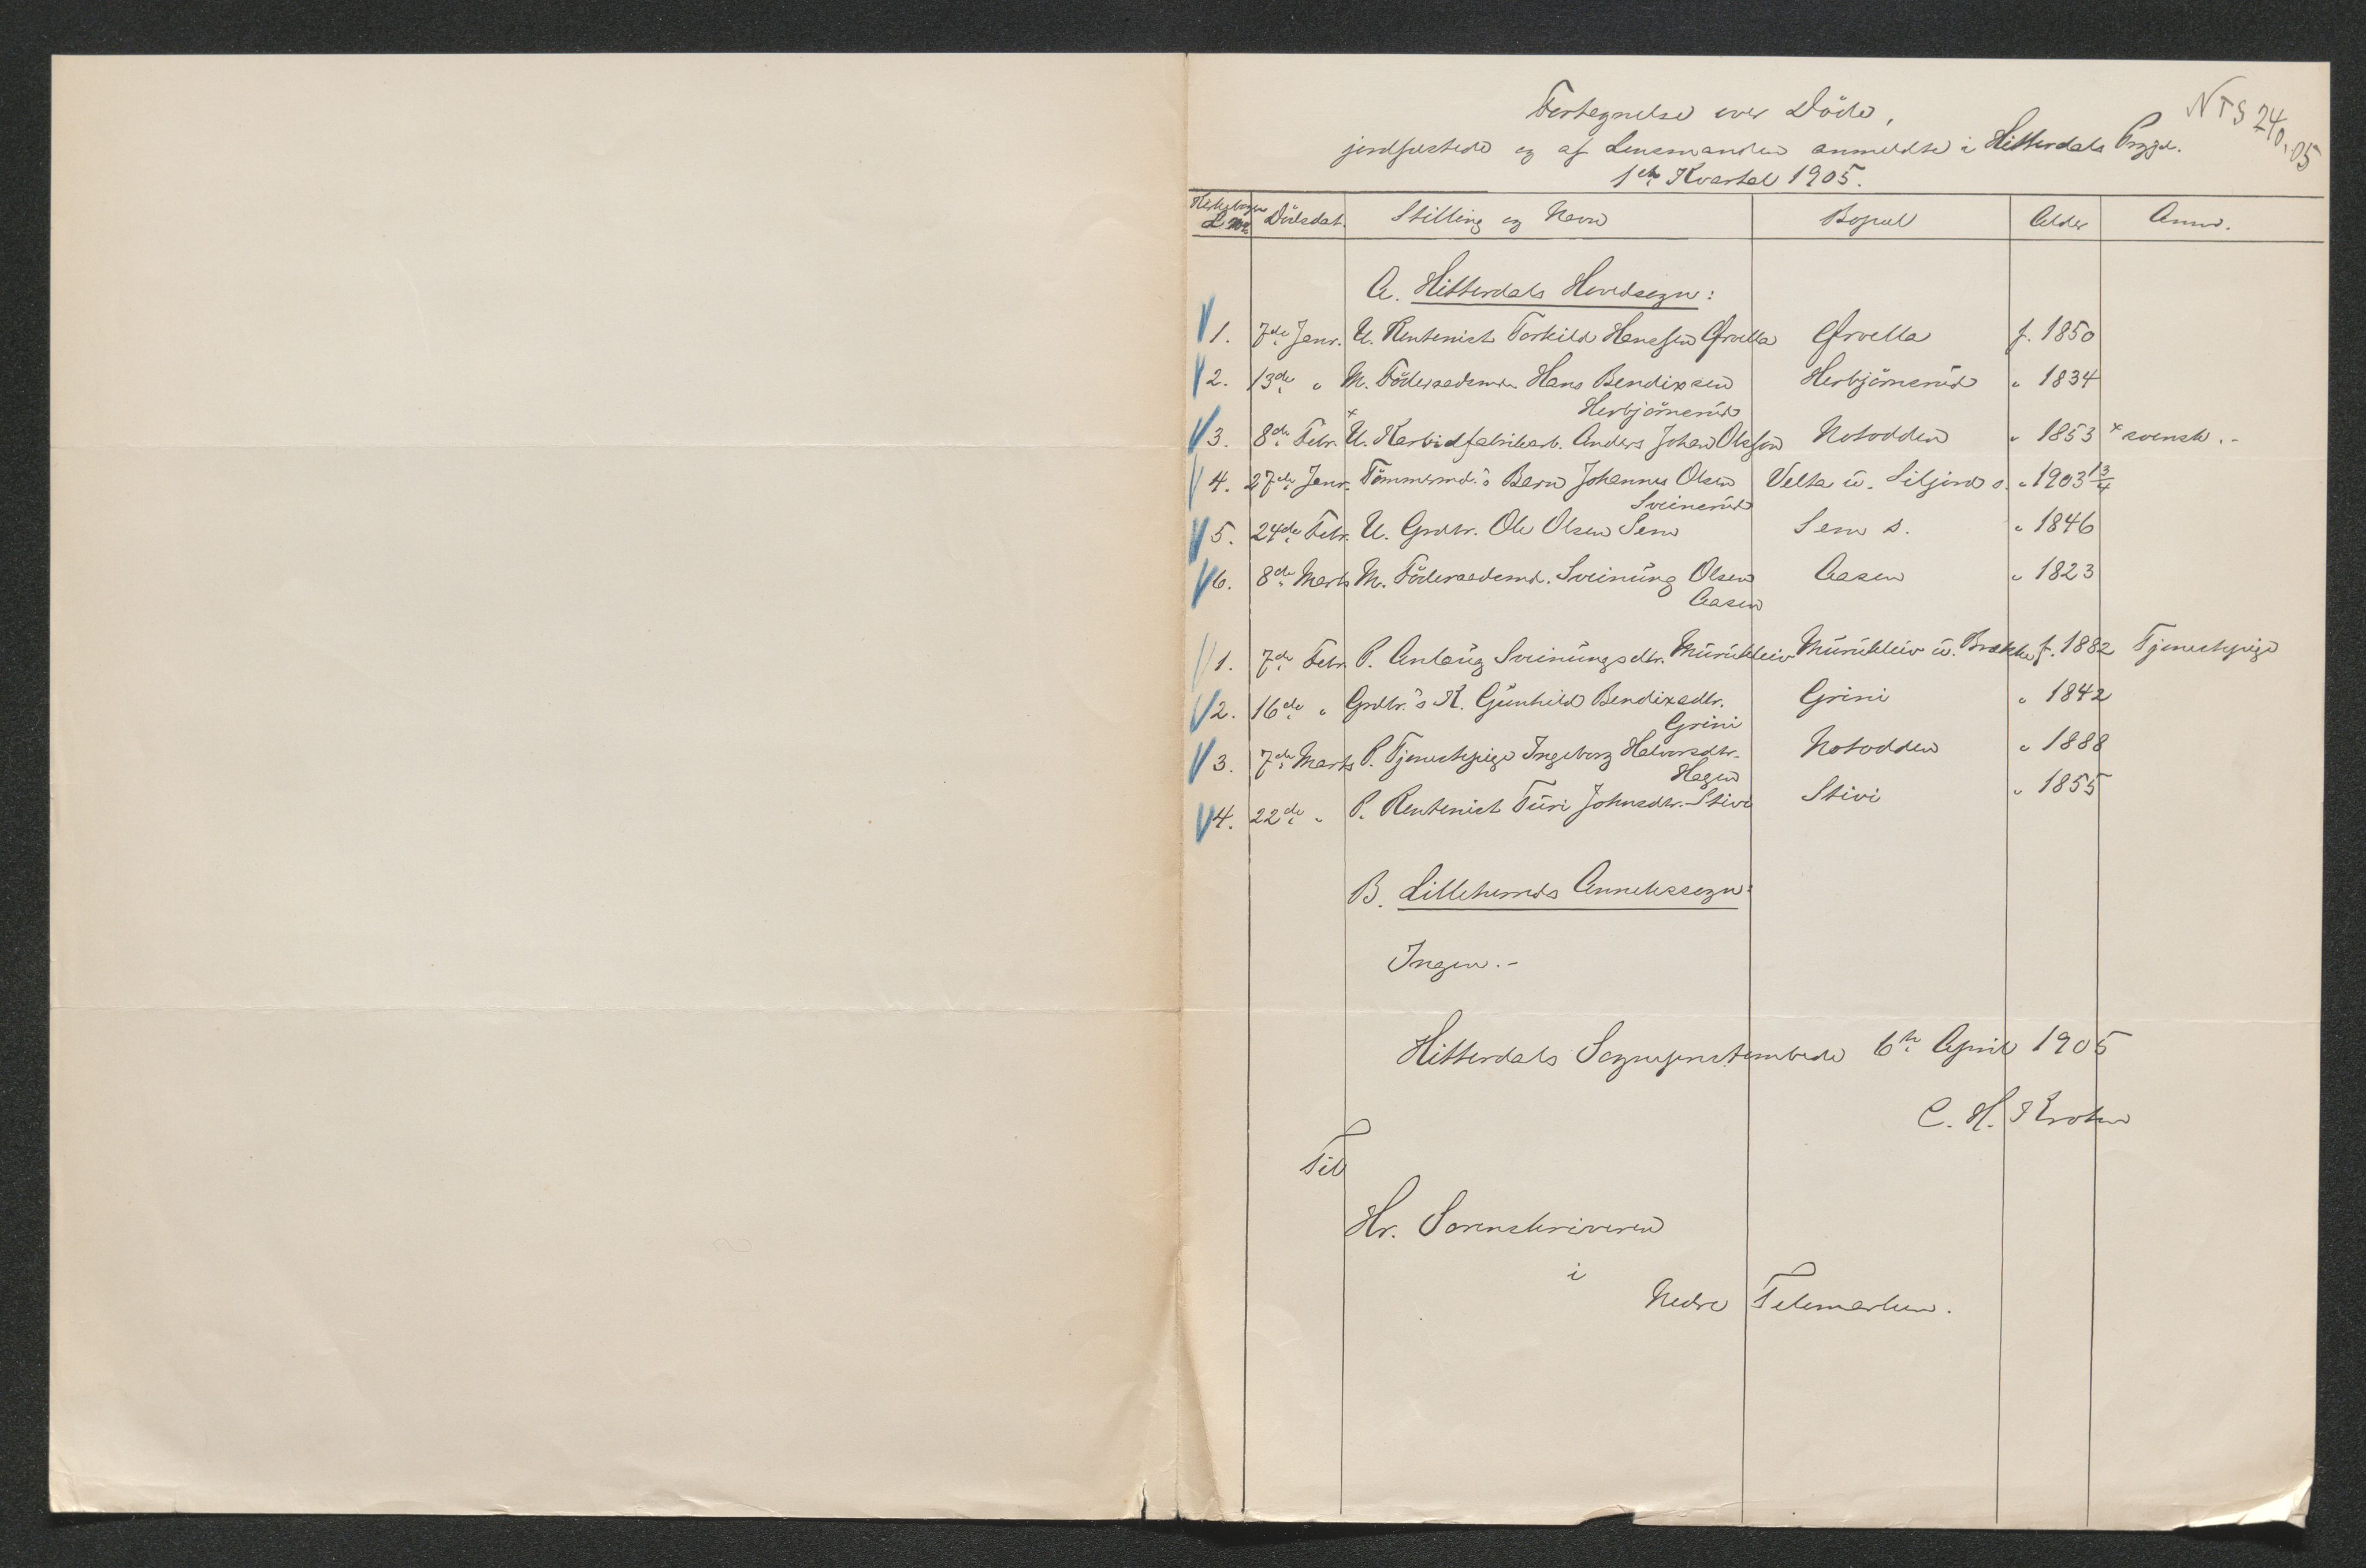 NTS 240.05
Fortegnelse over Döde,
jordfæstede og af Lensmanden anmeldte i Hitterdals Prgjd.
1ste Kvartal 1905.
Kirkebogens L. No. Dödsdat. Stilling og Navn Bopæl Alder Anm.
A. Hitterdals Hovedsogn:
1. 7de Janr. U. Rentenist Torkild Hanssen Ørvella Ørvella f. 1850
2. 13de " M. Föderaadsmd. Hans Bendixsen Herbjörnsrüd " 1834
Herbjörnsrüd
3. 8de Febr. U. ×Karbidfabrikarb. Anders Johan Olsson Notodden " 1853 × svensk.-
4. 27de Janr. Tömmermd.'s Barn Johannes Olsen Velta ü. Siljord s. " 1903 13/4
Sveinsrüd
5. 24de Febr. U. Grdbr. Ole Olsen Sem Sem s. " 1846
6. 8de Marts M. Föderaadsmd. Sveinüng Olsen Aasen " 1823
Aasen
1. 7de Febr. P. Anlaüg Sveinüngsdtr. Mürükleiv Mürükleiv ü. Brække f. 1882 Tjenestepige
2. 16de " Grdbr.'s K. Günhild Bendixsdtr. Grini " 1842
Grini
3. 7de Marts P. Tjenestepige Ingeborg Halvorsdtr. Notodden " 1888
Hagen
4. 22de " P. Rentenist Türi Johnsdtr. Stivi Stivi " 1855
B. Lilleherreds Annekssogn:
Ingen.-
Hitterdals Sogneprestembede 6te April 1905
C. H. Krohn
Til
Hr. Sorenskriveren
i
Nedre Telemarken.